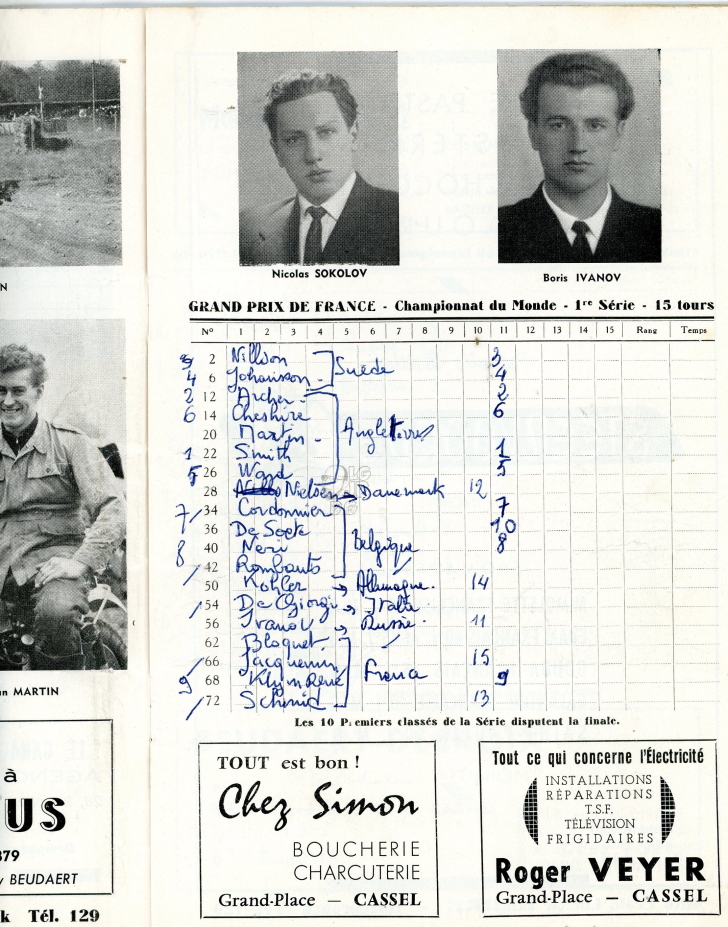 N
Nicolas SOKOLOV
Boris IVANOV
GRAND PRIX DE FRANCE - Championnat du Monde - 1re Série - 15 tours
N° 1 2 3 4 5 6 7 8 9 10 11 12 13 14 15 Rang Temps
3 2 Nillson 3
4 6 Johansson Suède 4
2 12 Archer 2
6 14 Cheshire 6
20 Martin Angleterre
1 22 Smith 1
5 26 Ward 5
28 Nielsen → Danemark 12
7 / 34 Cordonnier 7
36 De Soete 10
8 40 Neri Belgique 8
/ 42 Rombauts
50 Kohler → Allemagne 14
/ 54 De Giorgi → Italia
56 Ivanov → Russie 11
62 Bloquet
/ 66 Jacquemin 15
9 68 Klym René France 9
/ 72 Schmid 13
Les 10 Premiers classés de la Série disputent la finale.
n MARTIN
à
US
379
BEUDAERT
k Tél. 129
TOUT est bon !
Chez Simon
BOUCHERIE
CHARCUTERIE
Grand-Place — CASSEL
Tout ce qui concerne l'Électricité
INSTALLATIONS
RÉPARATIONS
T.S.F.
TÉLÉVISION
FRIGIDAIRES
Roger VEYER
Grand-Place — CASSEL